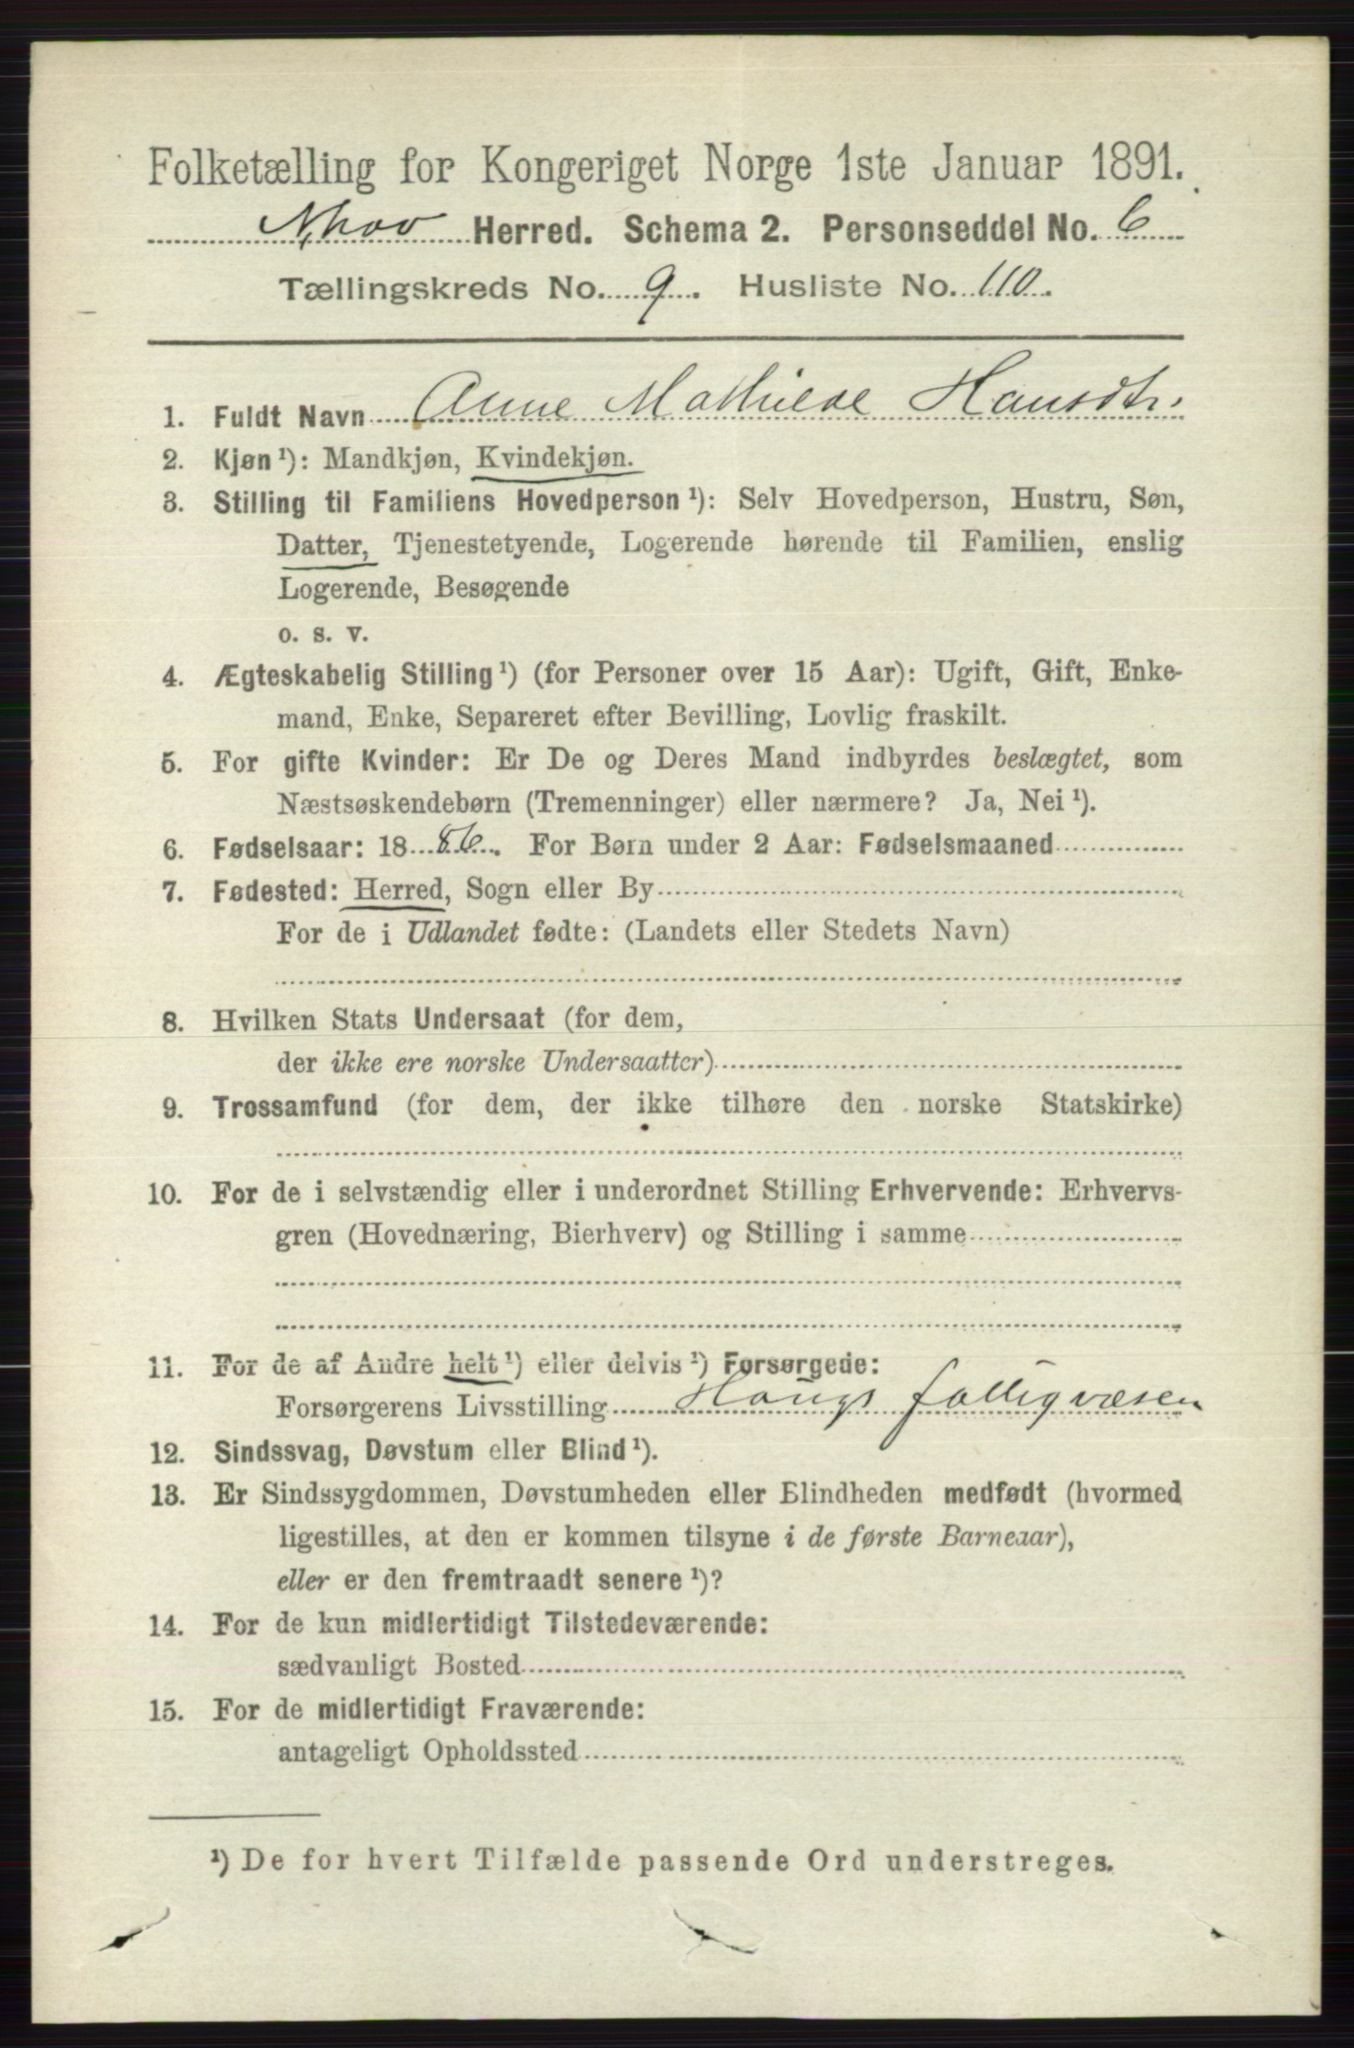 Folketælling for Kongeriget Norge 1ste Januar 1891.
Herred. Schema 2. Personseddel No. 6
Tællingskreds No. 9. Husliste No. 110.
1. Fuldt Navn Anne Mathilde Hansdtr.
2. Kjøn ¹): Mandkjøn, Kvindekjøn.
3. Stilling til Familiens Hovedperson ¹): Selv Hovedperson, Hustru, Søn,
Datter, Tjenestetyende, Logerende hørende til Familien, enslig
Logerende, Besøgende
o. s. v.
4. Ægteskabelig Stilling ¹) (for Personer over 15 Aar): Ugift, Gift, Enke-
mand, Enke, Separeret efter Bevilling, Lovlig fraskilt.
5. For gifte Kvinder: Er De og Deres Mand indbyrdes beslægtet, som
Næstsøskendebørn (Tremenninger) eller nærmere? Ja, Nei ¹).
6. Fødselsaar: 1886. For Børn under 2 Aar: Fødselsmaaned
7. Fødested: Herred, Sogn eller By
For de i Udlandet fødte: (Landets eller Stedets Navn)
8. Hvilken Stats Undersaat (for dem,
der ikke ere norske Undersaatter)
9. Trossamfund (for dem, der ikke tilhøre den norske Statskirke)
10. For de i selvstændig eller i underordnet Stilling Erhvervende: Erhvervs-
gren (Hovednæring, Bierhverv) og Stilling i samme
11. For de af Andre helt ¹) eller delvis ¹) Forsørgede:
Forsørgerens Livsstilling
12. Sindssvag, Døvstum eller Blind ¹).
13. Er Sindssygdommen, Døvstumheden eller Blindheden medfødt (hvormed
ligestilles, at den er kommen tilsyne i de første Barneaar),
eller er den fremtraadt senere ¹)?
14. For de kun midlertidigt Tilstedeværende:
sædvanligt Bosted
15. For de midlertidigt Fraværende:
antageligt Opholdssted
¹) De for hvert Tilfælde passende Ord understreges.